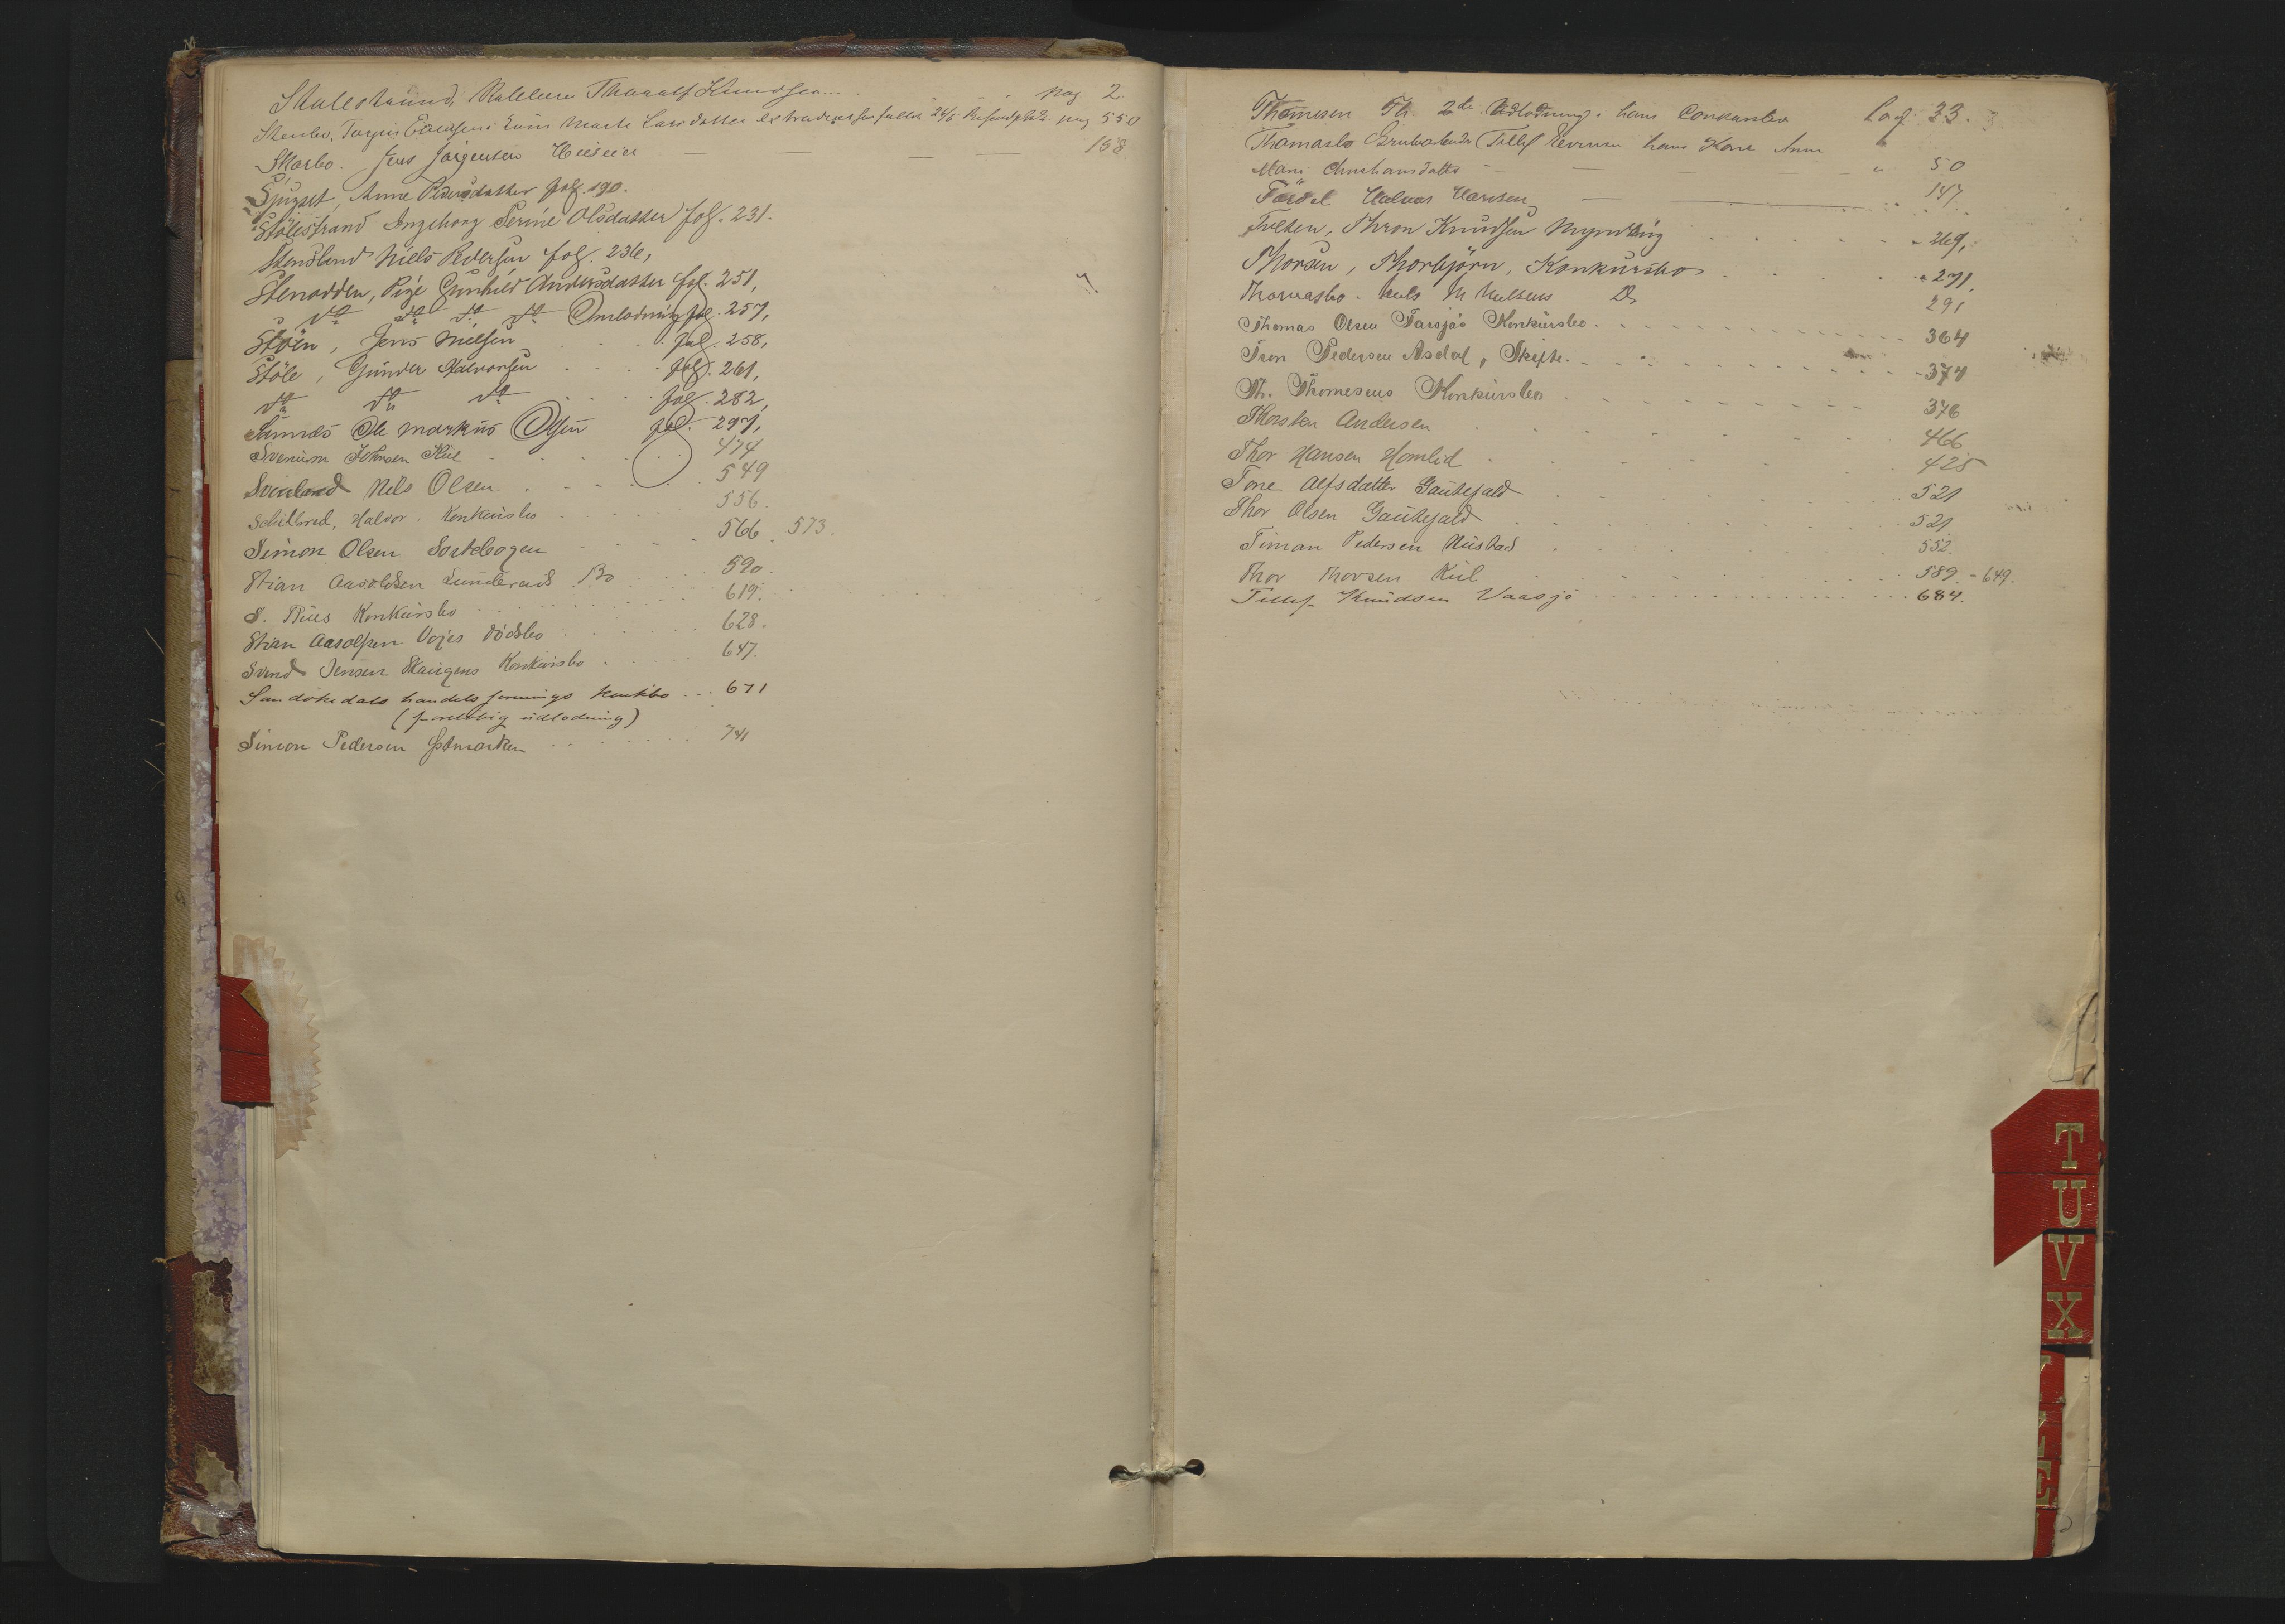 Stulestrand, Thoralf Knudsen... pag 2.
Stenbo, Marte Larsdatter 24/5 pag 550
Skarbo. Jens Jørgensen 158
Sjurset, Anne Pedersdatter fol. 190.
Stölestrand Ingeborg Serine Olsdatter fol. 231.
Stensland Niels Pedersen fol. 236,
Stenodden, Pige Gunhild Andersdatter fol. 251,
do do do do Omlodning fol. 257,
Stöen, Jens Nielsen fol. 258,
Stöle, Gunder Halvorsen fol. 261,
do do do fol. 282,
Sannæs Ole Markus Olsen fol. 297,
Svenum Johnsen Kiil 474
Svinland Nels Olsen 549
Halvor. Konkursbo 556.
Simon Olsen Sortebogen 566. 573.
Stian Aasoldsen Lundereds Bo 590.
S. Riis Konkursbo 619.
Stian Aasolfsen Vojes Dödsbo 628.
Svend Jensen Skaugens Konkursbo 647.
Sandökedals handelsforenings Konkbo 671
(foreløbig udlodning)
Simon Pedersen Østmarken 741
Thomesen Th. 2de Udlodning i hans Conkursbo Pag. 33.
Thomasbo Tellef hans Kone Anne
Mari 50
Halvor Hansen 147
Tveten, Thron Knudsen Myndling 269,
Thorsen, Thorbjörn, Konkursbo 271,
Thomasbo. Nels M Nielsens Do 291
Thomas Olsen Farsjös Konkursbo. 364
Tron Pedersen Asdal, Skifte. 374
Th. Thomesens Konkursbo 376
Thorsten Andersen 466
Thor Hansen Homlid 425
Tone Alfsdatter Gautefald 521
Thor Olsen Gautefald 521
Timan Pedersen 552.
Thor Thorsen Kiil 589 - 649.
Tellef Knudsen Vaasjö 684.
T
U
V
X